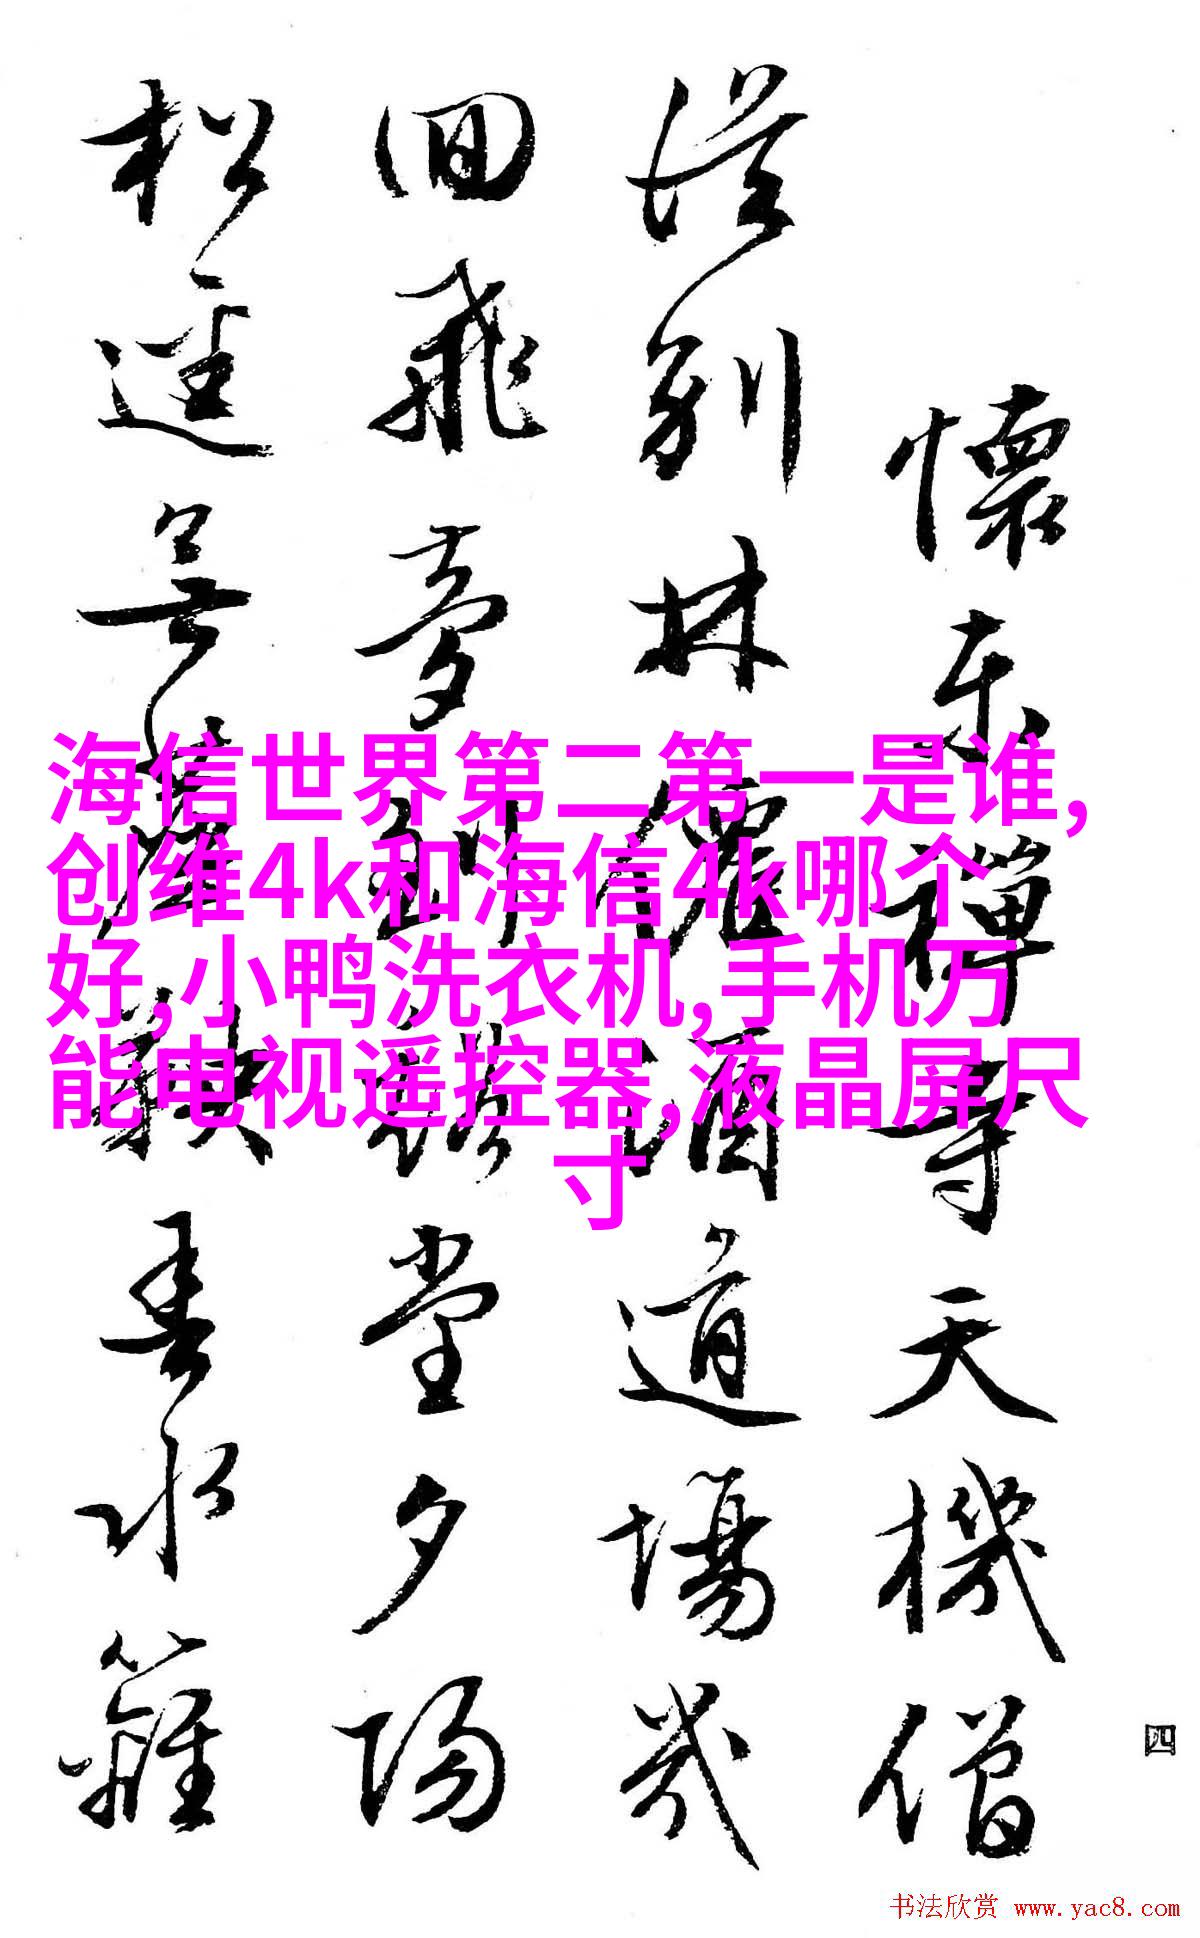 懷東禪寺天機僧
從別林僊酒道場幾
回飛夢到禪堂夕陽
松逕無
春水籬
四
海信世界第二第一是谁,
创维4k和海信4k哪个
好,小鸭洗衣机,手机万
能电视遥控器,液晶屏尺
寸
书法欣赏 www.yac8.com